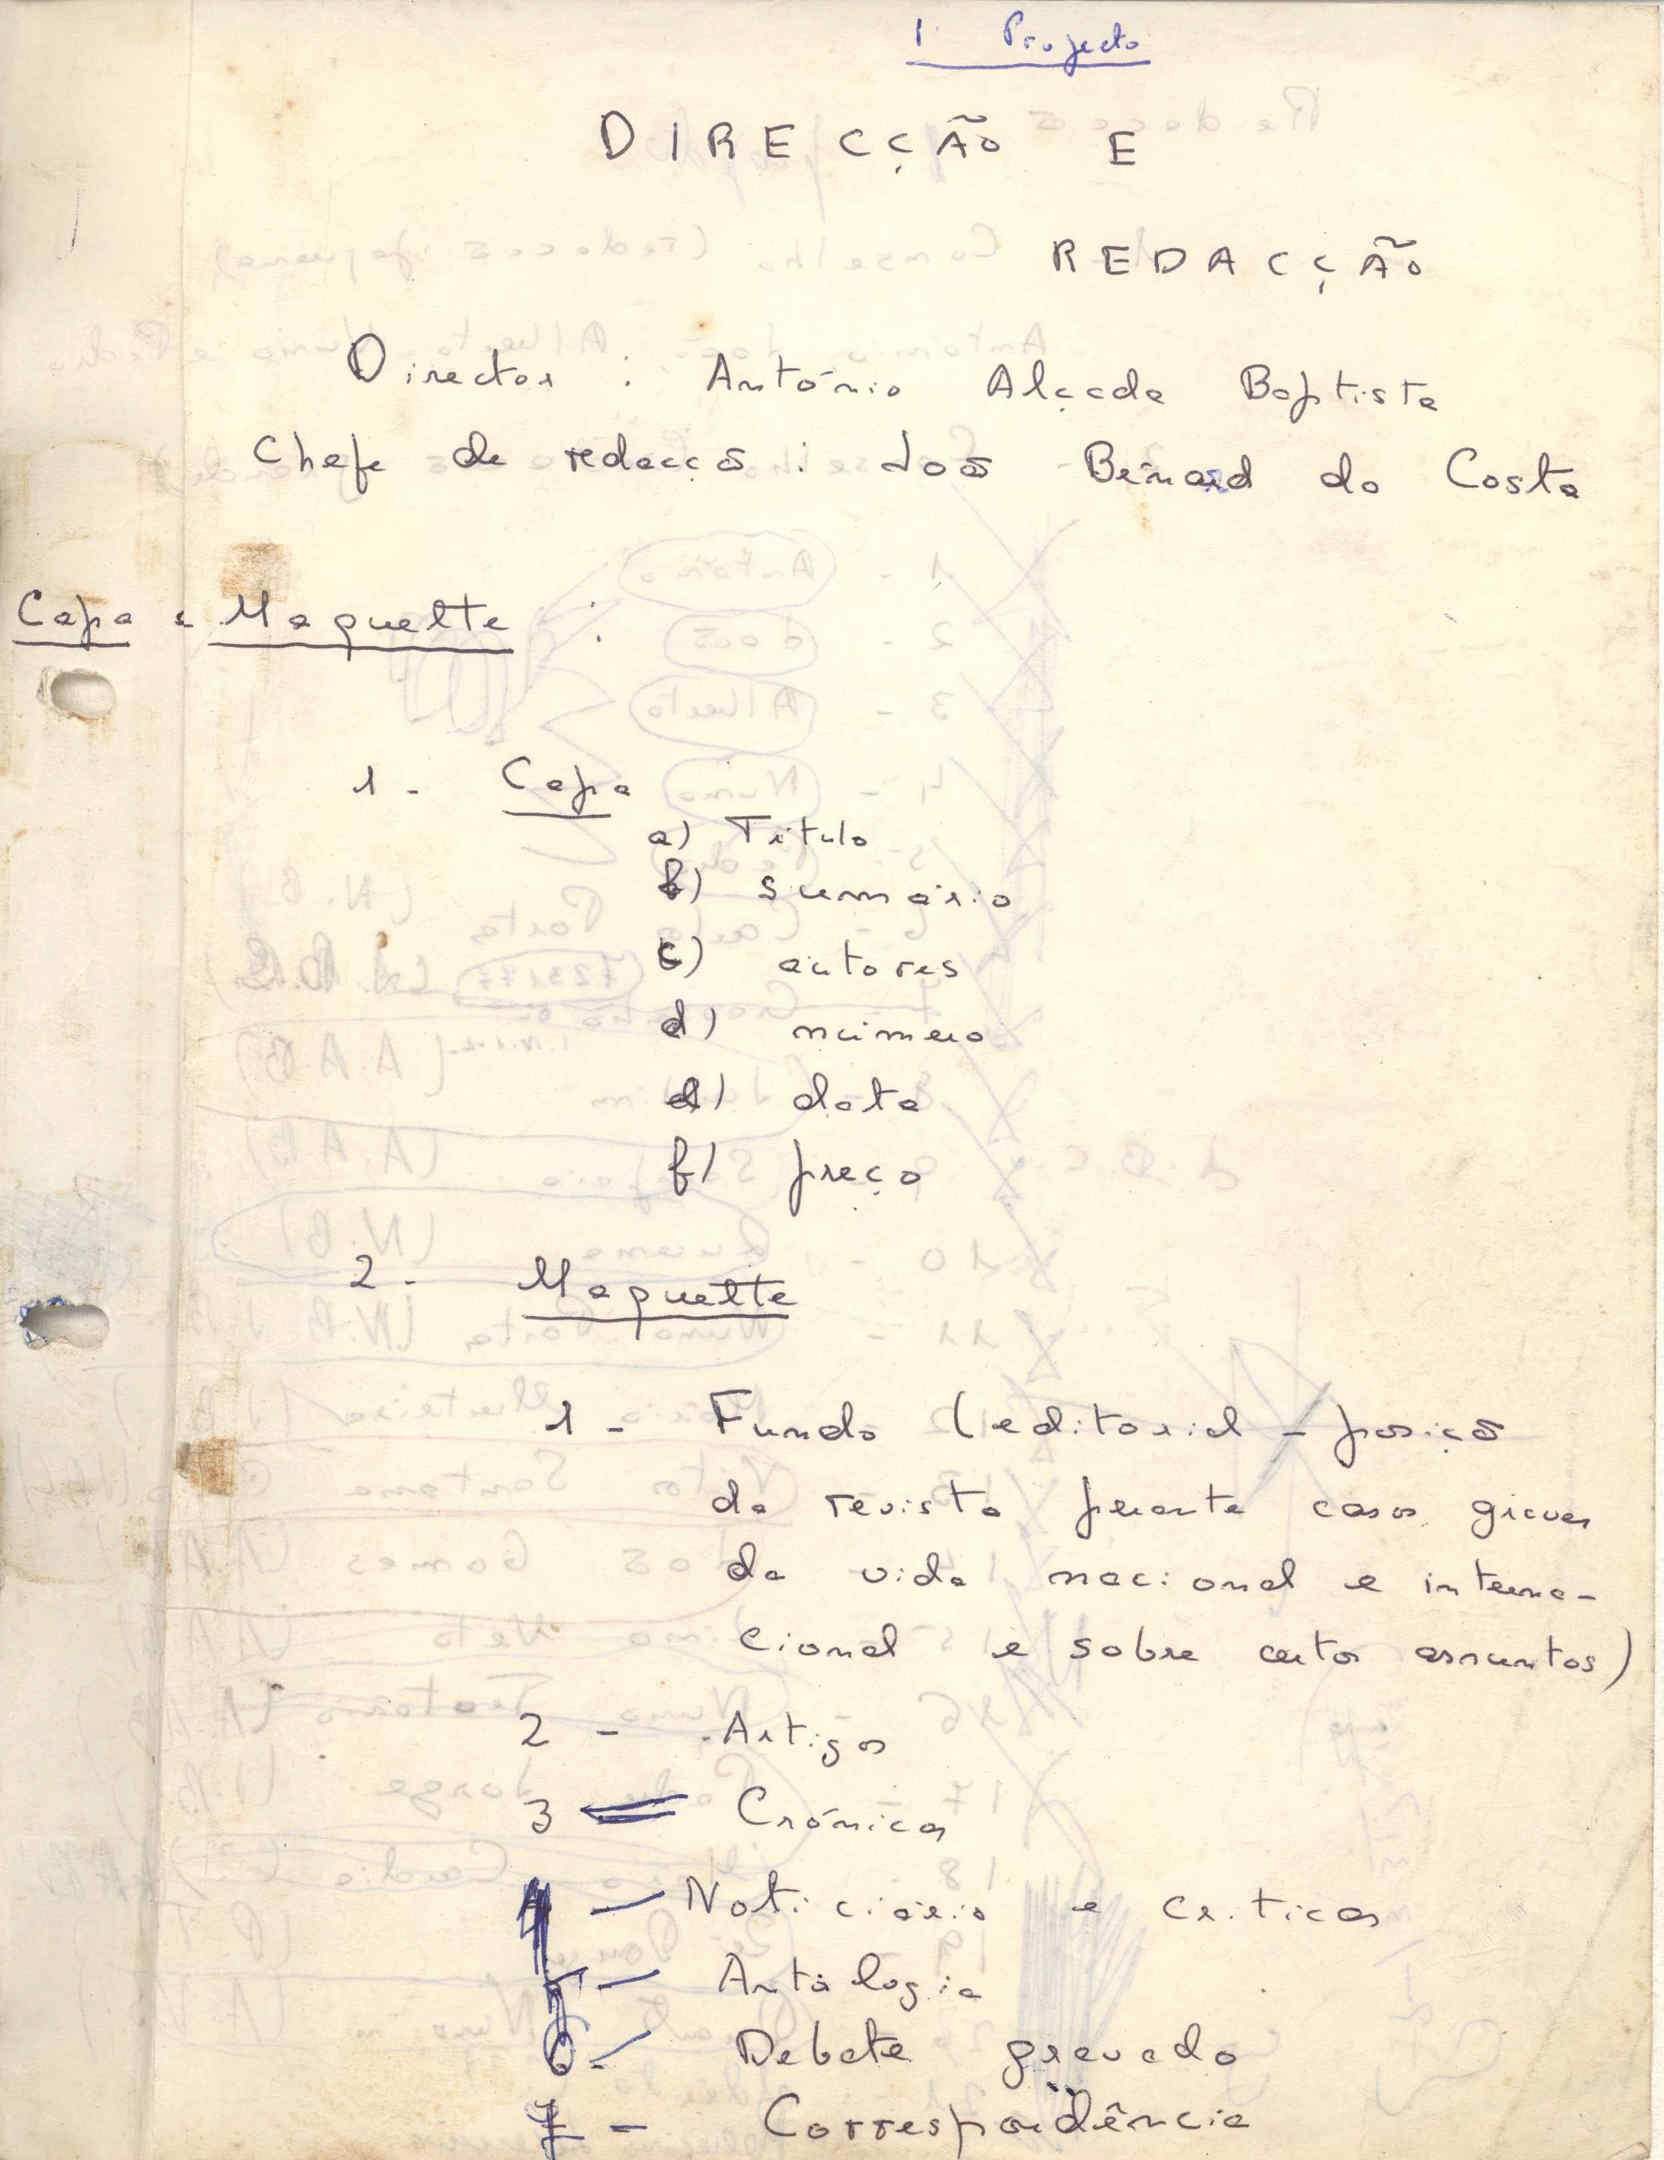 1 Projecto
DIRECÇÃO E
REDACÇÃO
Director : António Alçada Baptista
Chefe de redacção : João Bénard da Costa
Capa e Maquette :
1 - Capa
a) Título
b) sumário
c) autores
d) número
d) data
f) preço
2 - Maquette
1 - Fundo (editorial - posição
da revista perante casos graves
da vida nacional e interna-
cional e sobre certos assuntos)
2 - Artigos
3 - Crónicas
4 - Noticiário e críticas
5 - Antologia
6 - Debate gravado
7 - Correspondência